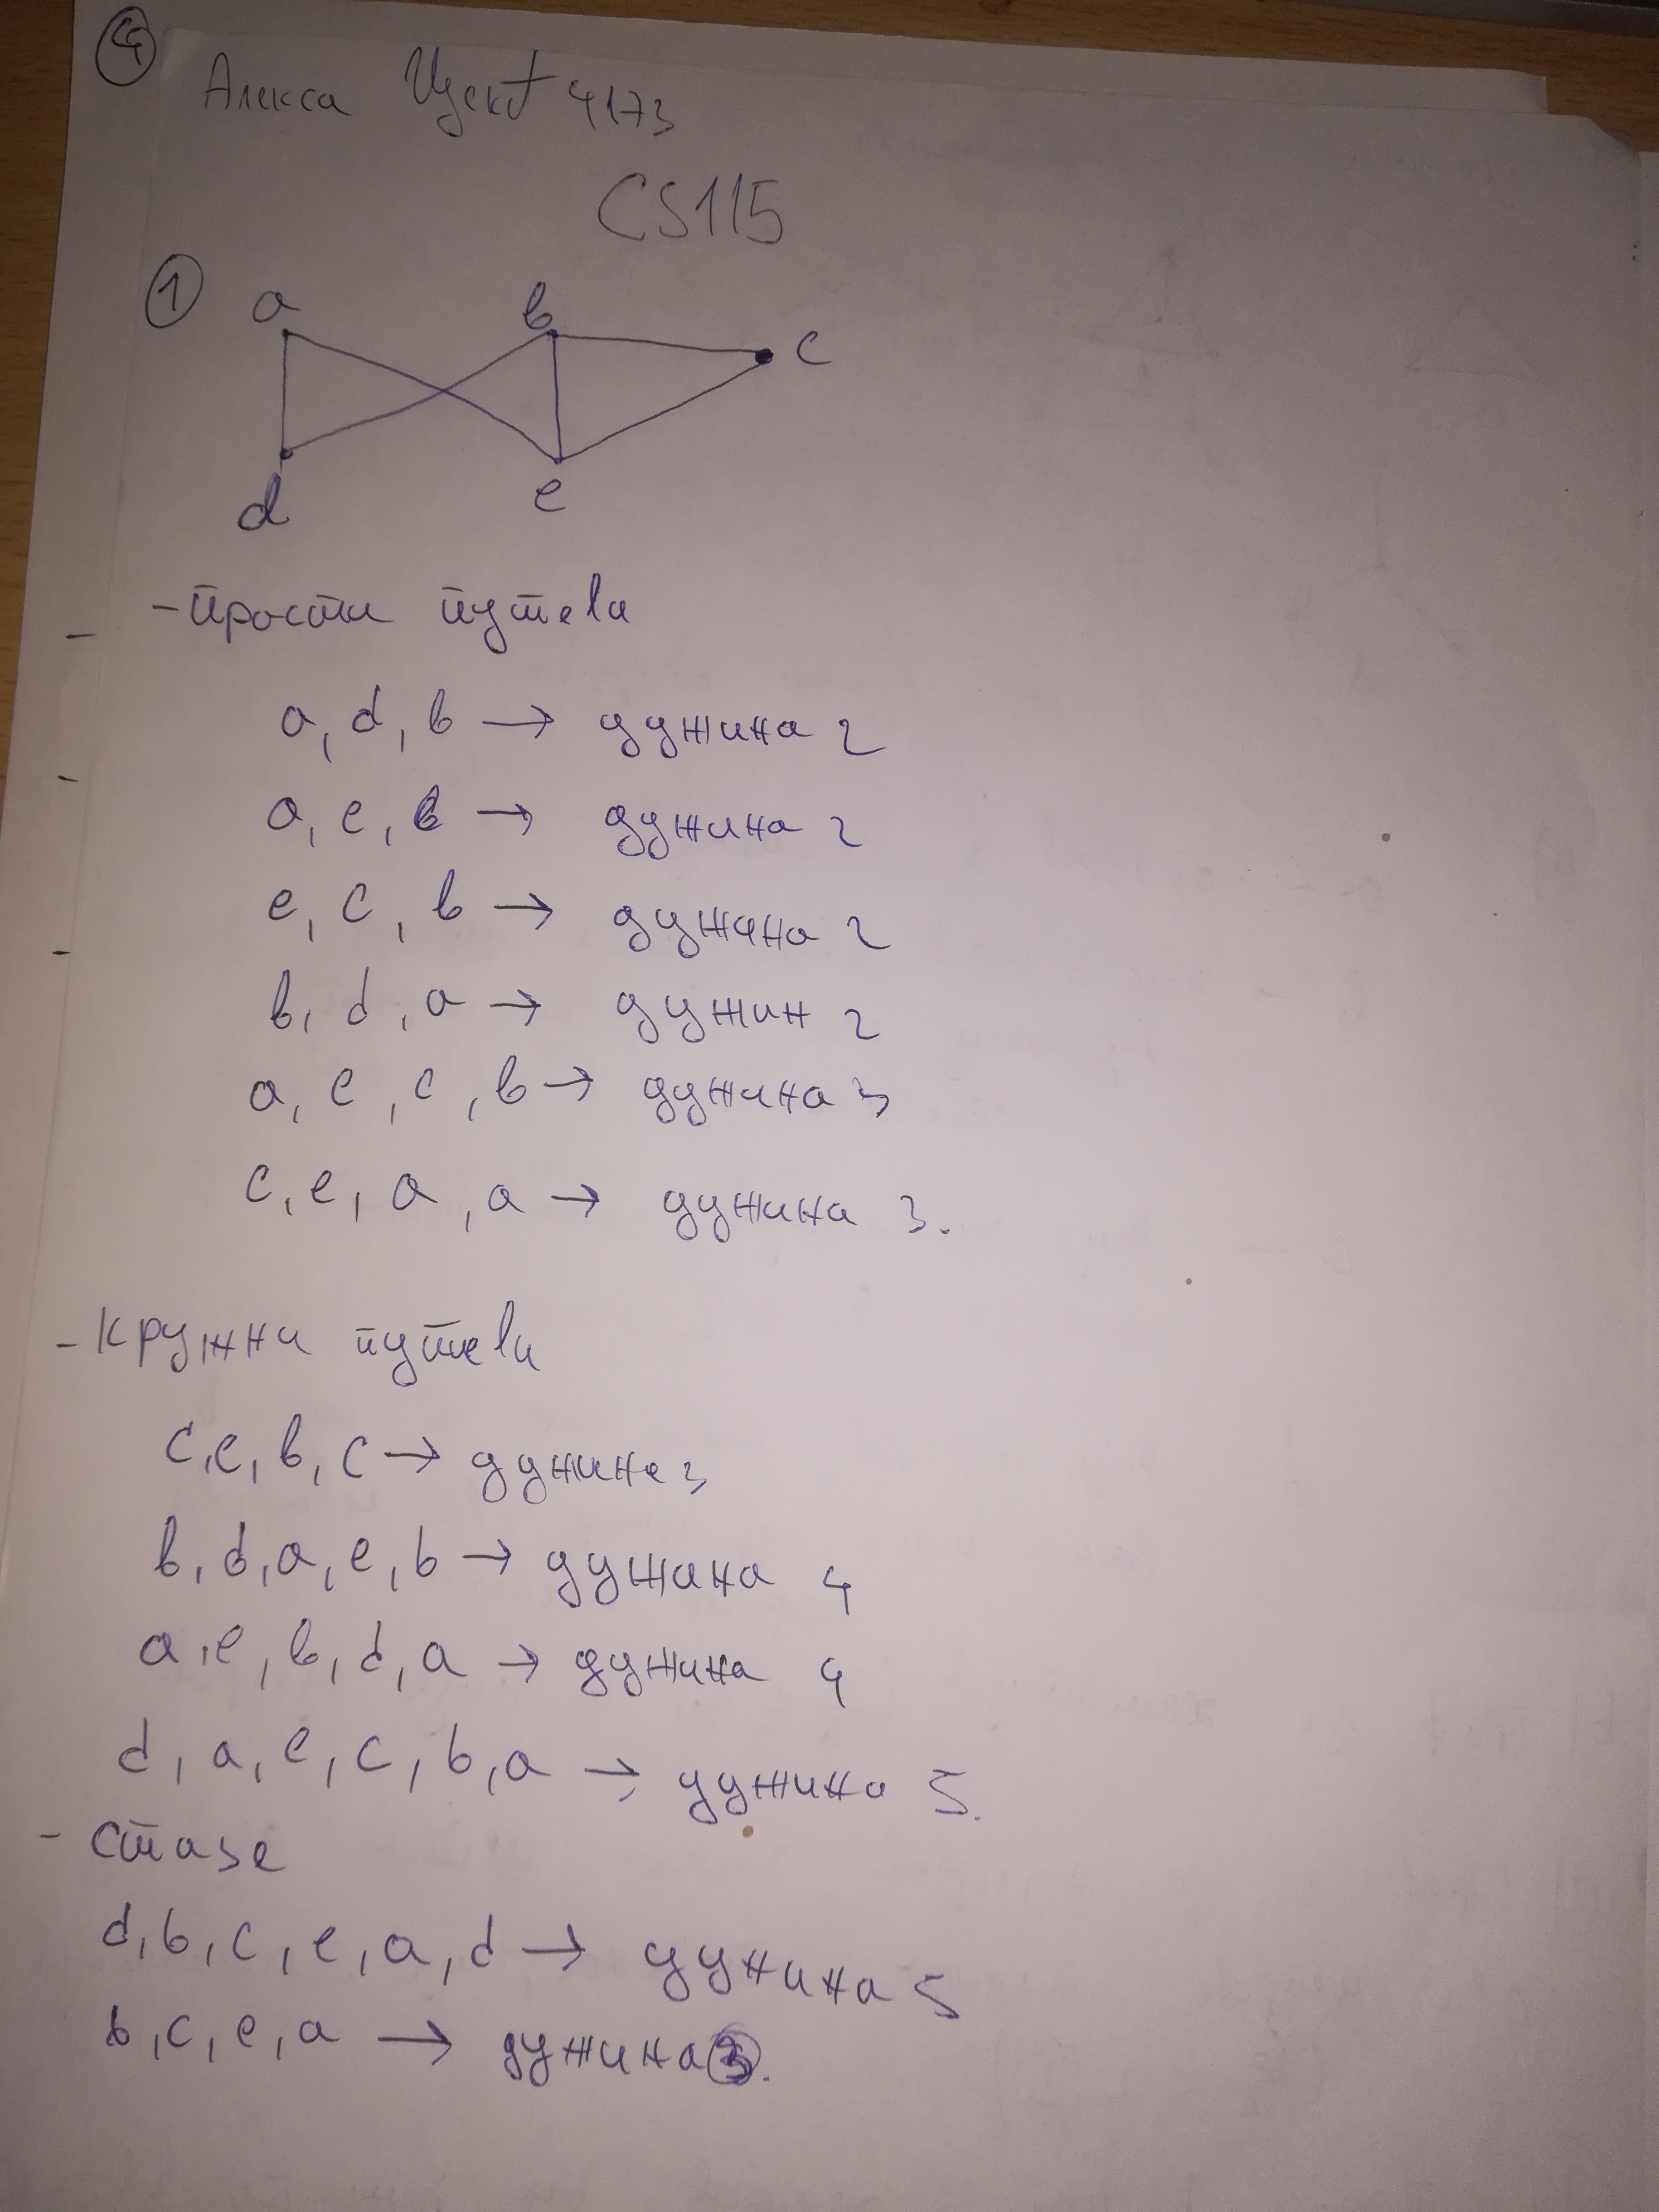 4
Алекса 4173
CS115
1
a b c
d e
- Прости путеви
a, d, b → дужина 2
a, e, b → дужина 2
e, c, b → дужина 2
b, d, a → дужин 2
a, e, c, b → дужина 3
c, e, a, a → дужина 3.
- Кружни путеви
c, e, b, c → дужина 3
b, d, a, e, b → дужина 4
a, e, b, d, a → дужина 4
d, a, e, c, b, a → дужина 5.
- Стазе
d, b, c, e, a, d → дужина 5
b, c, e, a → дужина 3.